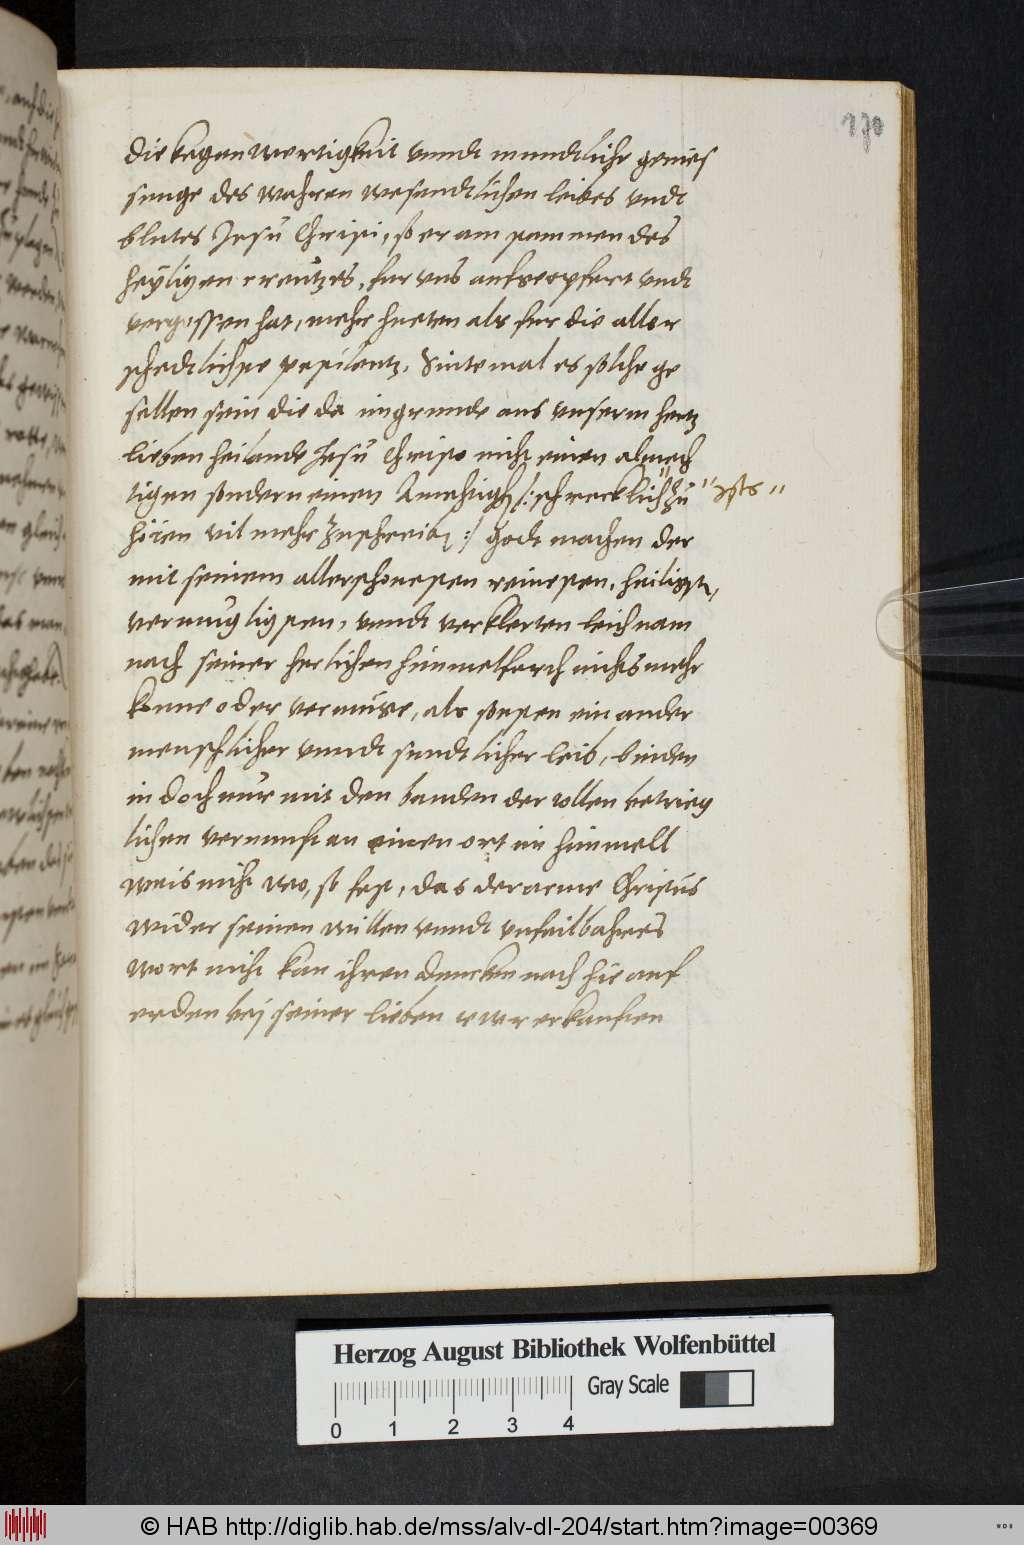 170
die kegenwertigkeit vnndt mundtliche genies
sunge des wahren wesendtlichen leibes vndt
blutes Jesu Christi, so er am stammen des
heyligen creutzes, fur vns aufgeopfert vndt
vergossen hat, mehr hueten als fur die aller
schedtlichste pestilentz. Sintemal es solche ge
sellen sein die da im grunde aus vnserm hertz
lieben heilande Jhesu Christo nicht einen almech
tigen sondern einen Amechtigen /: schrecklich zu
hören vil mehr zuschreiben :/ Godt machen der
mit seinem allerschonesten reinesten, heiligsten,
vermugligsten, vnndt verklerten leichnam
nach seiner herlichen himmelfarth nichts mehr
konne oder vermuge, als sonsten ein ander
menschlicher vnndt sundtlicher leib, binden
in doch nur mit den banden der tollen betrieg
lichen vernunft an einen ort im himmell
weis nicht wo, so fest, das der arme Christus
wider seinen willen vnndt vnfailbahres
wort nicht kan ihren dencken nach hie auf
erden bej seiner lieben erkauften
Herzog August Bibliothek Wolfenbüttel
Gray Scale
0 1 2 3 4
© HAB http://diglib.hab.de/mss/alv-dl-204/start.htm?image=00369